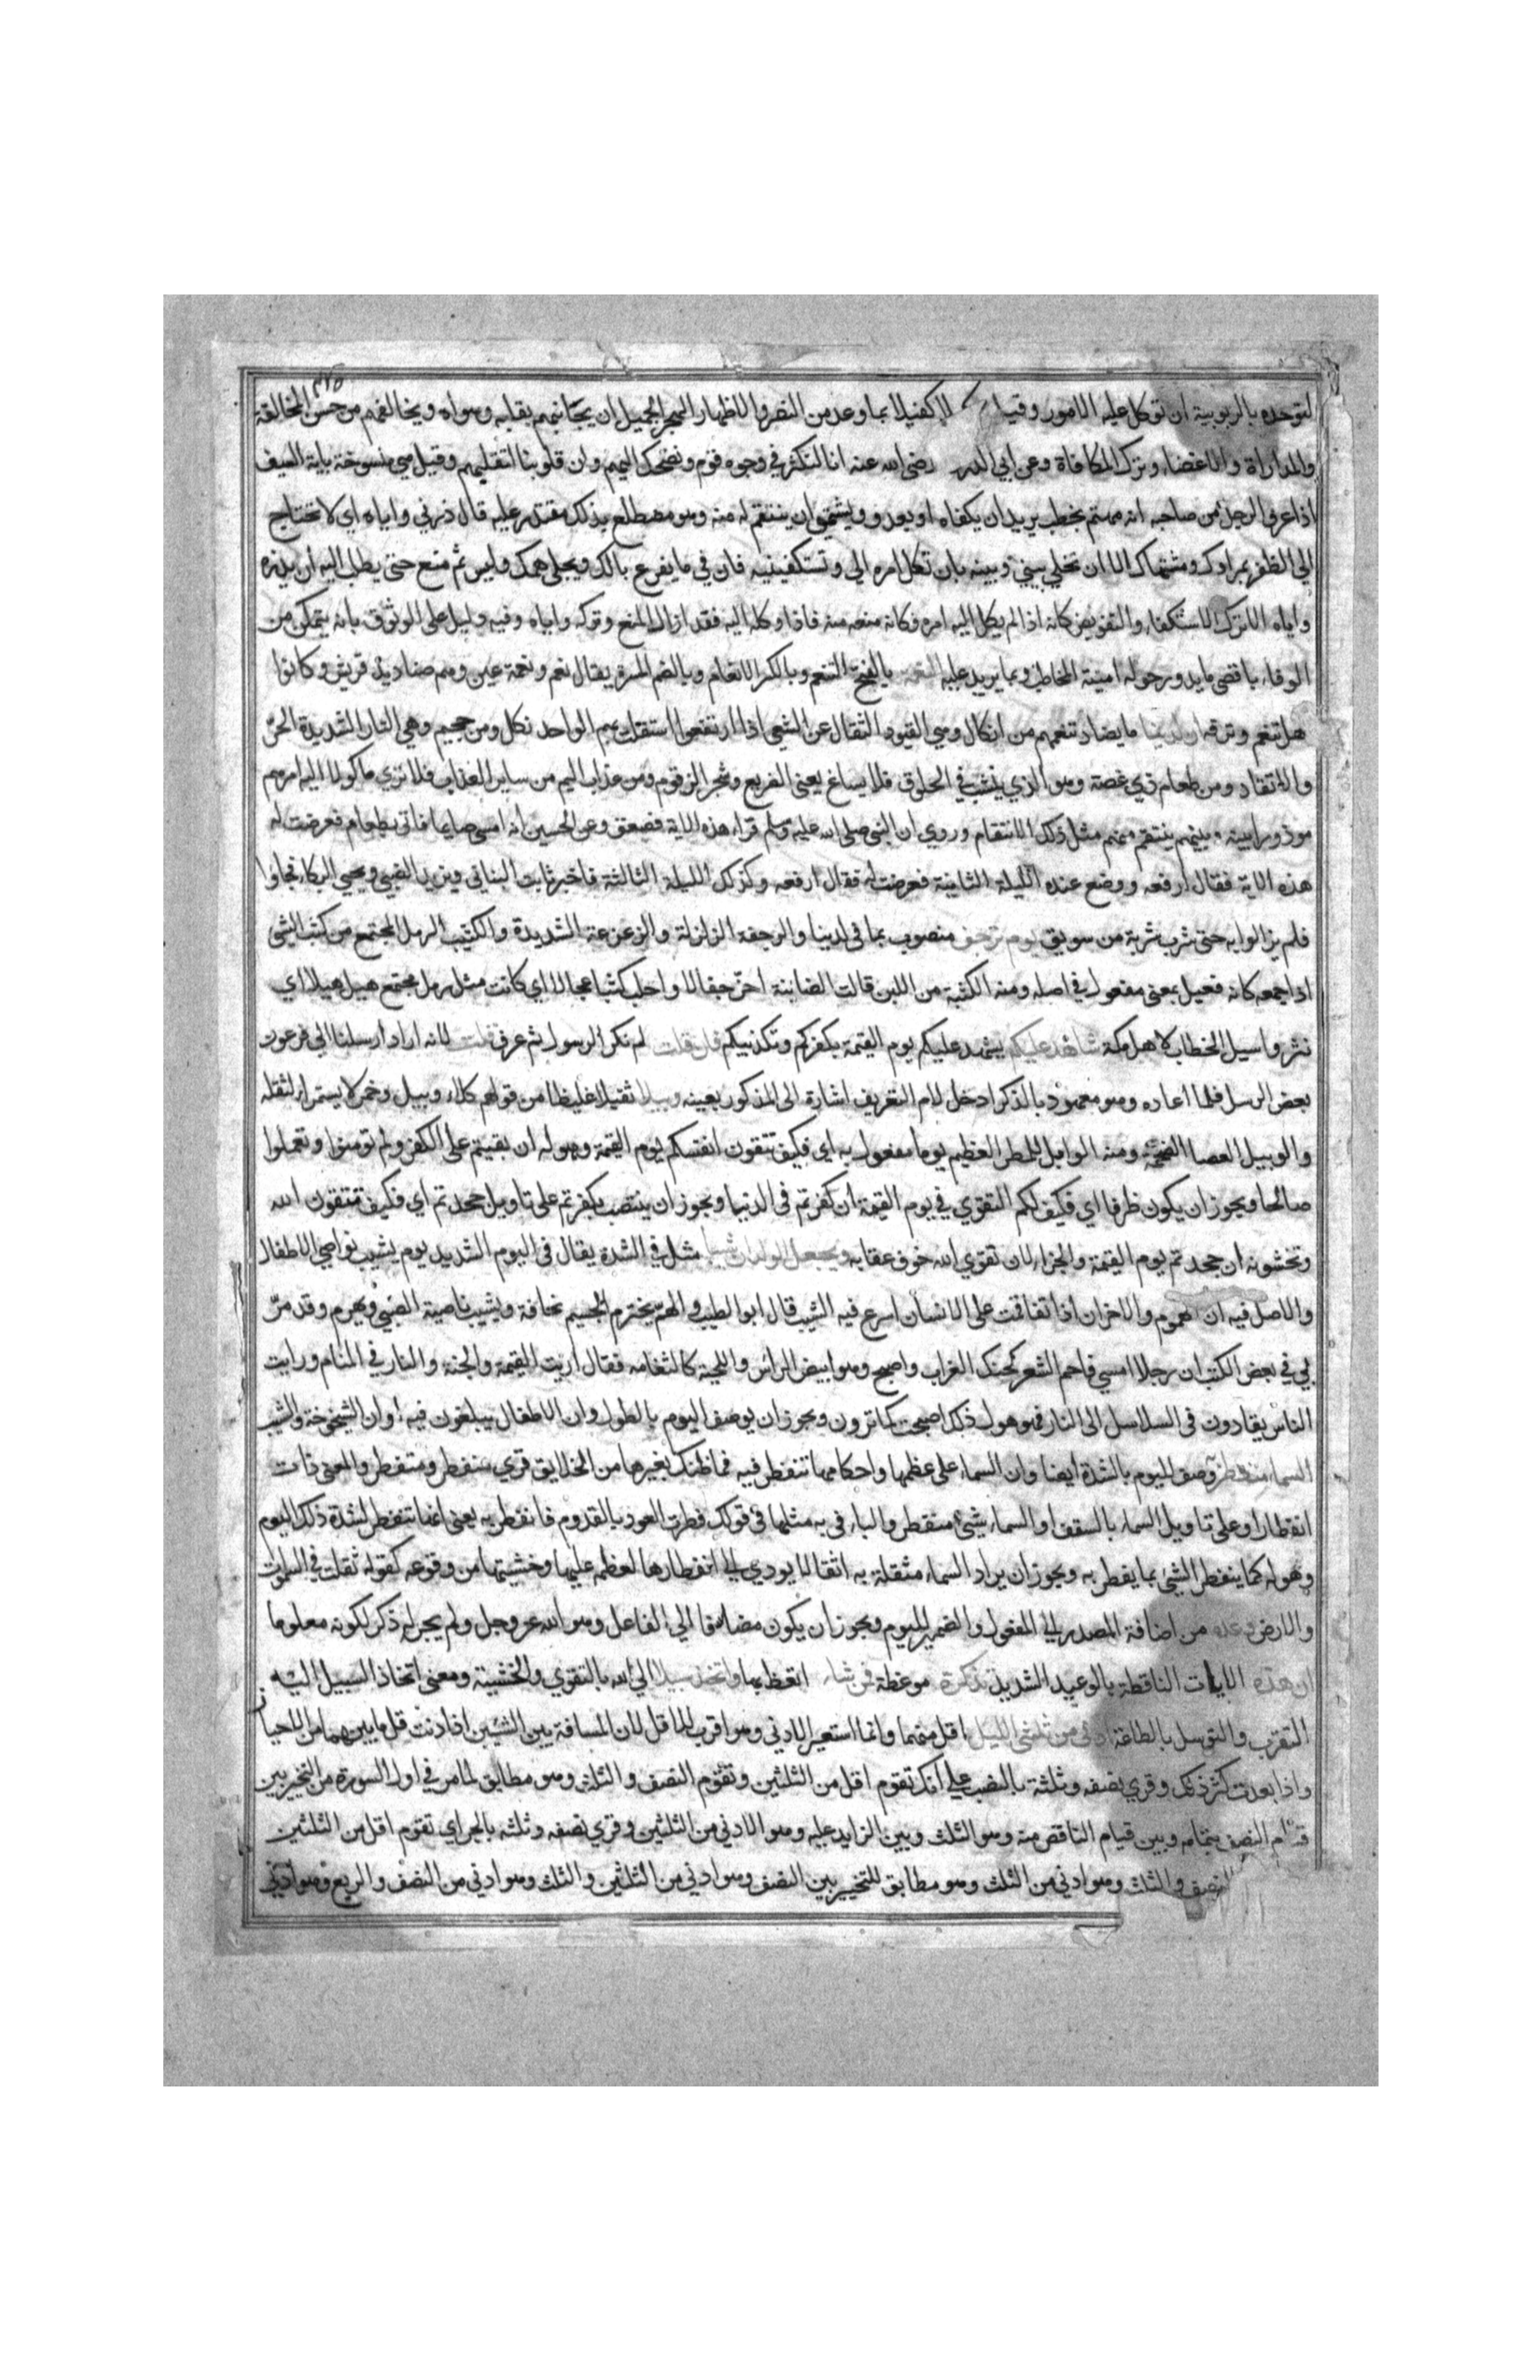 لتوحده بالربوبية ان توكل عليه الامور وقيل كفيلا بما وعد من النصر والاظهار الهجر الجميل ان يجانبهم بقلبه وهواه ويخالفهم من حسن المخالقة
والمداراة والاغضاء وترك المكافاة وعن ابي الدرد رضي الله عنه انا لنكثر في وجوه قوم ونضحك اليهم وان قلوبنا لتقليهم وقيل هي منسوخة باية السيف
اذا عرف الرجل من صاحبه انه مهتم بخطب يريد ان يكفاه او بعدو ويشتهي ان ينتقم له منه وهو مضطلع بذلك مقتدر عليه قال ذرني واياه اي لا تحتاج
الي الظفر بمرادك ومشتهاك الا ان تخلي بيني وبينه بان تكل امره الي وتستكفينيه فان في ما يفرغ بالك ويجلي همك وليس ثم منع حتى يطلب اليه ان يذره
واياه الا ترك الاستكفاء والتفويض كانه اذا لم يكل اليه امره فكانه منعه منه فاذا وكله اليه فقد ازال المنع وتركه واياه وفيه دليل على الوثوق بانه يتمكن من
الوفاء باقصى ما يدور حوله امنية المخاطب وبما يزيد عليه النعمة بالفتح التنعم وبالكسر الانعام وبالضم المسرة يقال نعم ونعمة عين وهم صناديد قريش وكانوا
هل تنعم وترفه ان لدينا ما يضاد تنعمهم من انكال وهي القيود الثقال عن الشعبي اذا ارتفعوا استقلت بهم الواحد نكل ومن جحيم وهي النار الشديدة الحر
والاتقاد ومن طعام ذي غصة وهو الذي ينشب في الحلوق فلا يساغ يعني الضريع وشجر الزقوم ومن عذاب اليم من ساير العذاب فلا تري موكولا اليه امرهم
موذورا بينه وبينهم ينتقم منهم مثل ذلك الانتقام وروي ان النبي صلى الله عليه وسلم قراء هذه الاية فصعق وعن الحسين انه امسى صايما فاتى بطعام فعرضت له
هذه الاية فقال ارفعه ووضع عنده الليلة الثانية فعرضت له فقال ارفعه وكذلك الليلة الثالثة فاخبر ثابت البناني ويزيد الضبي ويحيي البكاء فجاوا
فلم يزالوا به حتى شرب شربة من سويق يوم ترجف منصوب بما في لدينا والرجفة الزلزلة والزعزعة الشديدة والكثيب الرمل المجتمع من كثب الشي
اذا جمعه كانه فعيل بمعنى مفعول في اصله ومنه الكثبة من اللبن قالت الضاينة اجز جفالا واحلب كثبا عجالا اي كانت مثل رمل مجتمع هيل هيلا اي
نثر واسيل الخطاب لاهل مكة شاهدا عليكم يشهد عليكم يوم القيمة بكفركم وتكذيبكم فان قلت لم نكر الرسول ثم عرف قلت لانه اراد ارسلنا الي فرعون
بعض الرسل فلما اعاده وهو معهود بالذكر ادخل لام التعريف اشارة الى المذكور بعينه وبيلا ثقيلا غليظا من قولهم كلاء وبيل وخم لا يستمراء لثقله
والوبيل العصا الضخمة ومنه الوابل للمطر العظيم يوما مفعول به اي فكيف تتقون انفسكم يوم القيمة وهوله ان بقيتم على الكفر ولم تومنوا وتعملوا
صالحا ويجوز ان يكون ظرفا اي فكيف لكم التقوي في يوم القيمة ان كفرتم في الدنيا ويجوز ان ينتصب بكفرتم على تاويل جحدتم اي فكيف تتقون الله
وتخشونه ان جحدتم يوم القيمة والجزاء لان تقوي الله خوف عقابه ويجعل الولدان شيبا مثل في الشدة يقال في اليوم الشديد يوم يشيب نواصي الاطفال
والاصل فيه ان الهموم والاحزان اذا تفاقمت على الانسان اسرع فيه الشيب قال ابو الطيب والهم يخترم الجسيم نحافة ويشيب ناصية الصبي ويهرم وقد مر
بي في بعض الكتب ان رجلا امسي فاحم الشعر كحنك الغراب واصبح وهو ابيض الراس واللحية كالثغامه فقال اريت القيمة والجنة والنار في المنام ورايت
الناس يقادون في السلاسل الى النار فمن هول ذلك اصبحت كما ترون ويجوز ان يوصف اليوم بالطول وان الاطفال يبلغون فيه اوان الشيخوخة والشيب
السماء منفطر وصف لليوم بالشدة ايضا وان السماء على عظمها واحكامها تنفطر فيه فما ظنك بغيرها من الخلايق قري منفطر ومتفطر والمعنى ذات
انفطار او على تاويل السماء بالسقف او السماء شيئ منفطر والباء في به مثلها في قولك فطرت العود بالقدوم فانفطر به يعني انها تنفطر لشدة ذلك اليوم
وهوله كما ينفطر الشئ بما يفطر به ويجوز ان يراد السماء مثقلة به اثقالا يودي الي انفطارها لعظمه عليها وخشيتها من وقوعه كقوله ثقلت في السموات
والارض وعده من اضافة المصدر الي المفعول والضمير لليوم ويجوز ان يكون مضافا الي الفاعل وهو الله عز وجل ولم يجر له ذكر لكونه معلوما
ان هذه الايات الناطقة بالوعيد الشديد تذكرة موعظة فمن شاء اتعظ بها واتخذ سبيلا الي الله بالتقوي والخشية ومعنى اتخاذ السبيل اليه
التقرب والتوسل بالطاعة ادنى من ثلثي الليل اقل منهما وانما استعير الادني وهو اقرب للاقل لان المسافة بين الشيئين اذا دنت قل ما بينهما من الاحياز
واذا بعدت كثر ذلك وقري نصفه وثلثه بالنصب علي انك تقوم اقل من الثلثين وتقوم النصف والثلث وهو مطابق لما مر في اول السورة من التخيير بين
قيام النصف بتمامه وبين قيام الناقص منه وهو الثلث وبين الزايد عليه وهو الادني من الثلثين وقري نصفه وثلثه بالجر اي تقوم اقل من الثلثين
النصف والثلث وهو ادني من الثلث وهو مطابق للتخيير بين النصف وهو ادني من الثلثين والثلث وهو ادني من النصف والربع وهو ادني